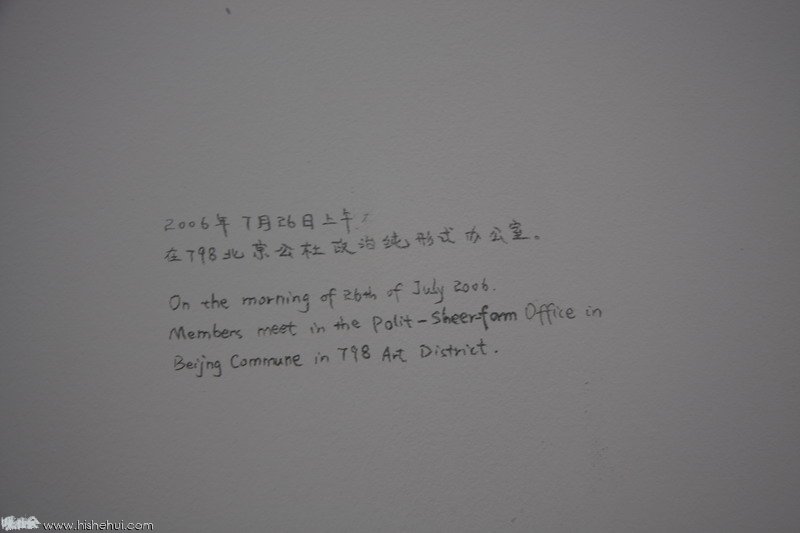 2006年7月26日上午
在798北京公社政治纯形式办公室。
On the morning of 26th of July 2006.
Members meet in the Polit-Sheer-form Office in
Beijng Commune in 798 Art District.
www.hishehui.com